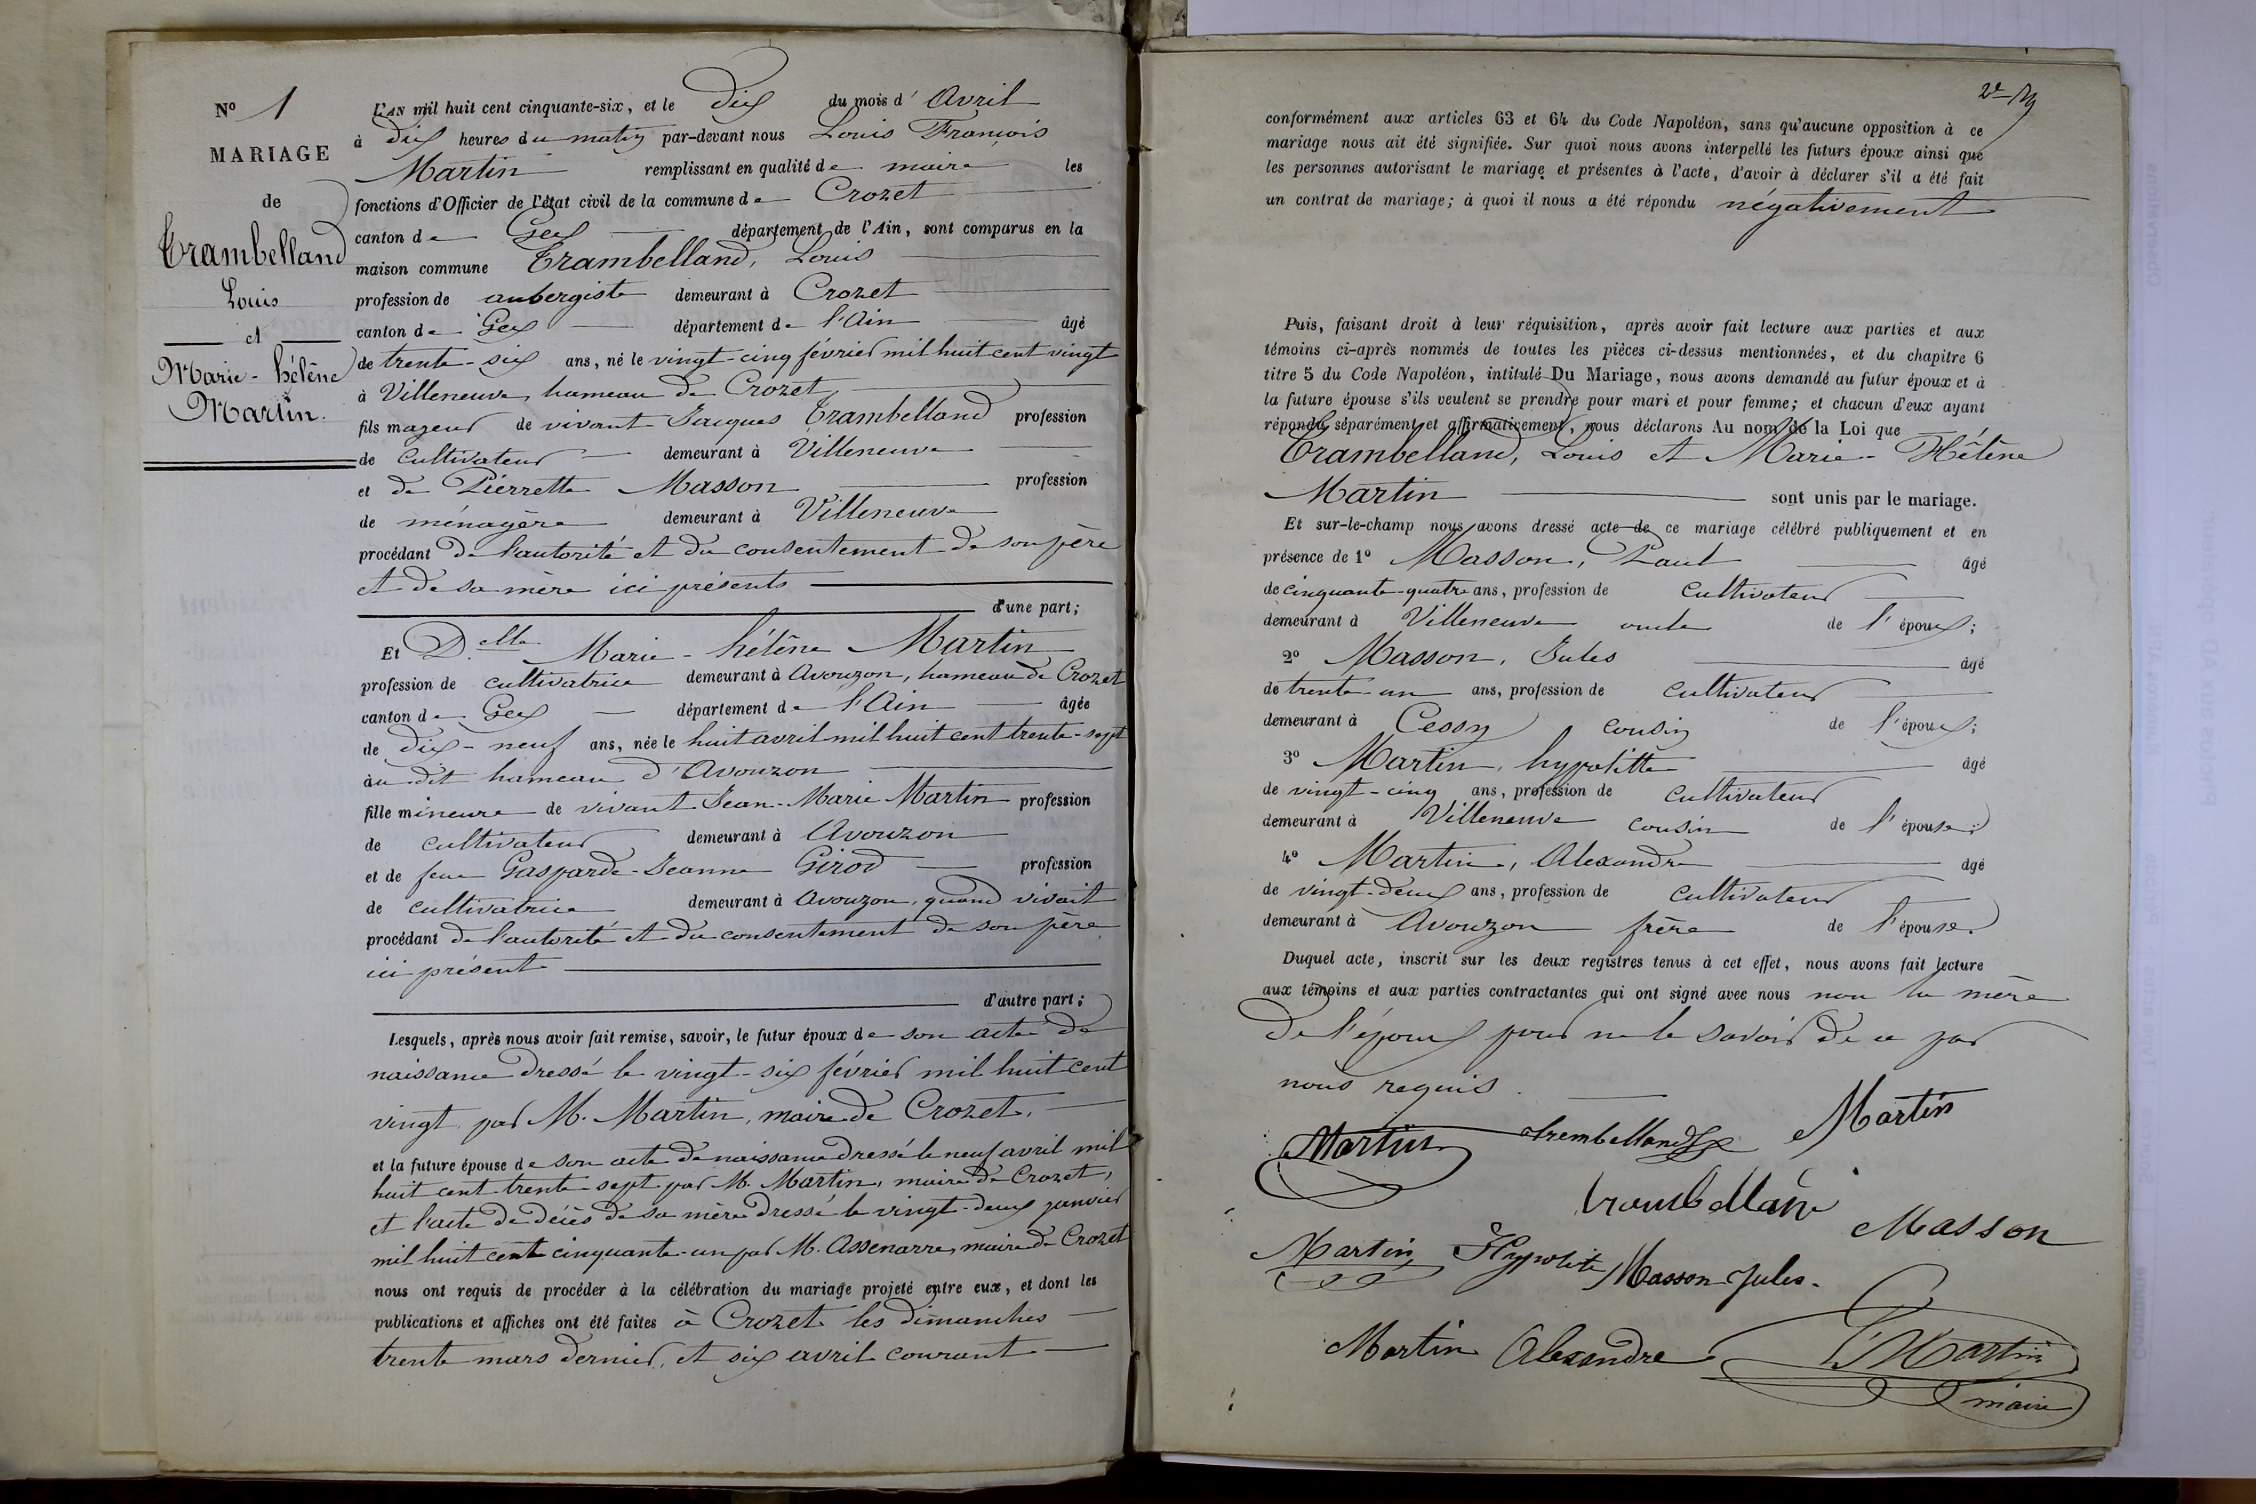 N° 1
MARIAGE
de
Trambelland
Louis
et
Marie-hélène
Martin.
L'AN mil huit cent cinquante-six, et le dix du mois d'Avril
à dix heures du matin par-devant nous Louis François
Martin remplissant en qualité de maire les
fonctions d'Officier de l'état civil de la commune de Crozet
canton de Gex département de l'Ain, sont comparus en la
maison commune Trambelland, Louis
profession de aubergiste demeurant à Crozet
canton de Gex département de l'Ain âgé
de trente-six ans, né le vingt-cinq février mil huit cent vingt
à Villeneuve, hameau de Crozet,
fils majeur de vivant Jacques Trambelland profession
de cultivateur demeurant à Villeneuve
et de Piérrette Masson profession
de ménagère demeurant à Villeneuve
procédant de l'autorité et du consentement de son père
et de sa mère ici présents
d'une part;
Et Delle Marie-hélène Martin
profession de cultivatrice demeurant à Avouzon, hameau de Crozet
canton de Gex département de l'Ain âgée
de dix-neuf ans, née le huit avril mil huit cent trente-sept
au dit hameau d'Avouzon
fille mineure de vivant Jean-Marie Martin profession
de cultivateur demeurant à Avouzon
et de feue Gasparde-Jeanne Girod profession
de cultivatrice demeurant à Avouzon, quand vivait
procédant de l'autorité et du consentement de son père
ici présent
d'autre part;
Lesquels, après nous avoir fait remise, savoir, le futur époux de son acte de
naissance dressé le vingt-six février mil huit cent
vingt, par M. Martin, maire de Crozet,
et la future épouse de son acte de naissance dressé le neuf avril mil
huit cent trente-sept par M. Martin, maire de Crozet,
et l'acte de décès de sa mère dressé le vingt-deux janvier
mil huit cent cinquante-un par M. Assenarre, maire de Crozet
nous ont requis de procéder à la célébration du mariage projeté entre eux, et dont les
publications et affiches ont été faites à Crozet les dimanches
trente mars dernier, et six avril courant
conformément aux articles 63 et 64 du Code Napoléon, sans qu'aucune opposition à ce
mariage nous ait été signifiée. Sur quoi nous avons interpellé les futurs époux ainsi que
les personnes autorisant le mariage et présentes à l'acte, d'avoir à déclarer s'il a été fait
un contrat de mariage; à quoi il nous a été répondu négativement
Puis, faisant droit à leur réquisition, après avoir fait lecture aux parties et aux
témoins ci-après nommés de toutes les pièces ci-dessus mentionnées, et du chapitre 6
titre 5 du Code Napoléon, intitulé Du Mariage, nous avons demandé au futur époux et à
la future épouse s'ils veulent se prendre pour mari et pour femme; et chacun d'eux ayant
répondu séparément et affirmativement, nous déclarons Au nom de la Loi que
Trambelland, Louis et Marie-Hélène
Martin sont unis par le mariage.
Et sur-le-champ nous avons dressé acte de ce mariage célébré publiquement et en
présence de 1° Masson, Paul âgé
de cinquante-quatre ans, profession de cultivateur
demeurant à Villeneuve oncle de l'époux;
2° Masson, Jules âgé
de trente-un ans, profession de cultivateur
demeurant à Cessy cousin de l'époux;
3° Martin, hypolitte âgé
de vingt-cinq ans, profession de cultivateur
demeurant à Villeneuve cousin de l'épouse;
4° Martin, Alexandre âgé
de vingt-deux ans, profession de cultivateur
demeurant à Avouzon frère de l'épouse.
Duquel acte, inscrit sur les deux registres tenus à cet effet, nous avons fait lecture
aux témoins et aux parties contractantes qui ont signé avec nous non la mère
de l'époux pour ne le savoir de ce par
nous requis.
Martin Trembelland Martin
Masson
Martin, Hypolite Masson Jules.
Martin Alexandre Martin
maire